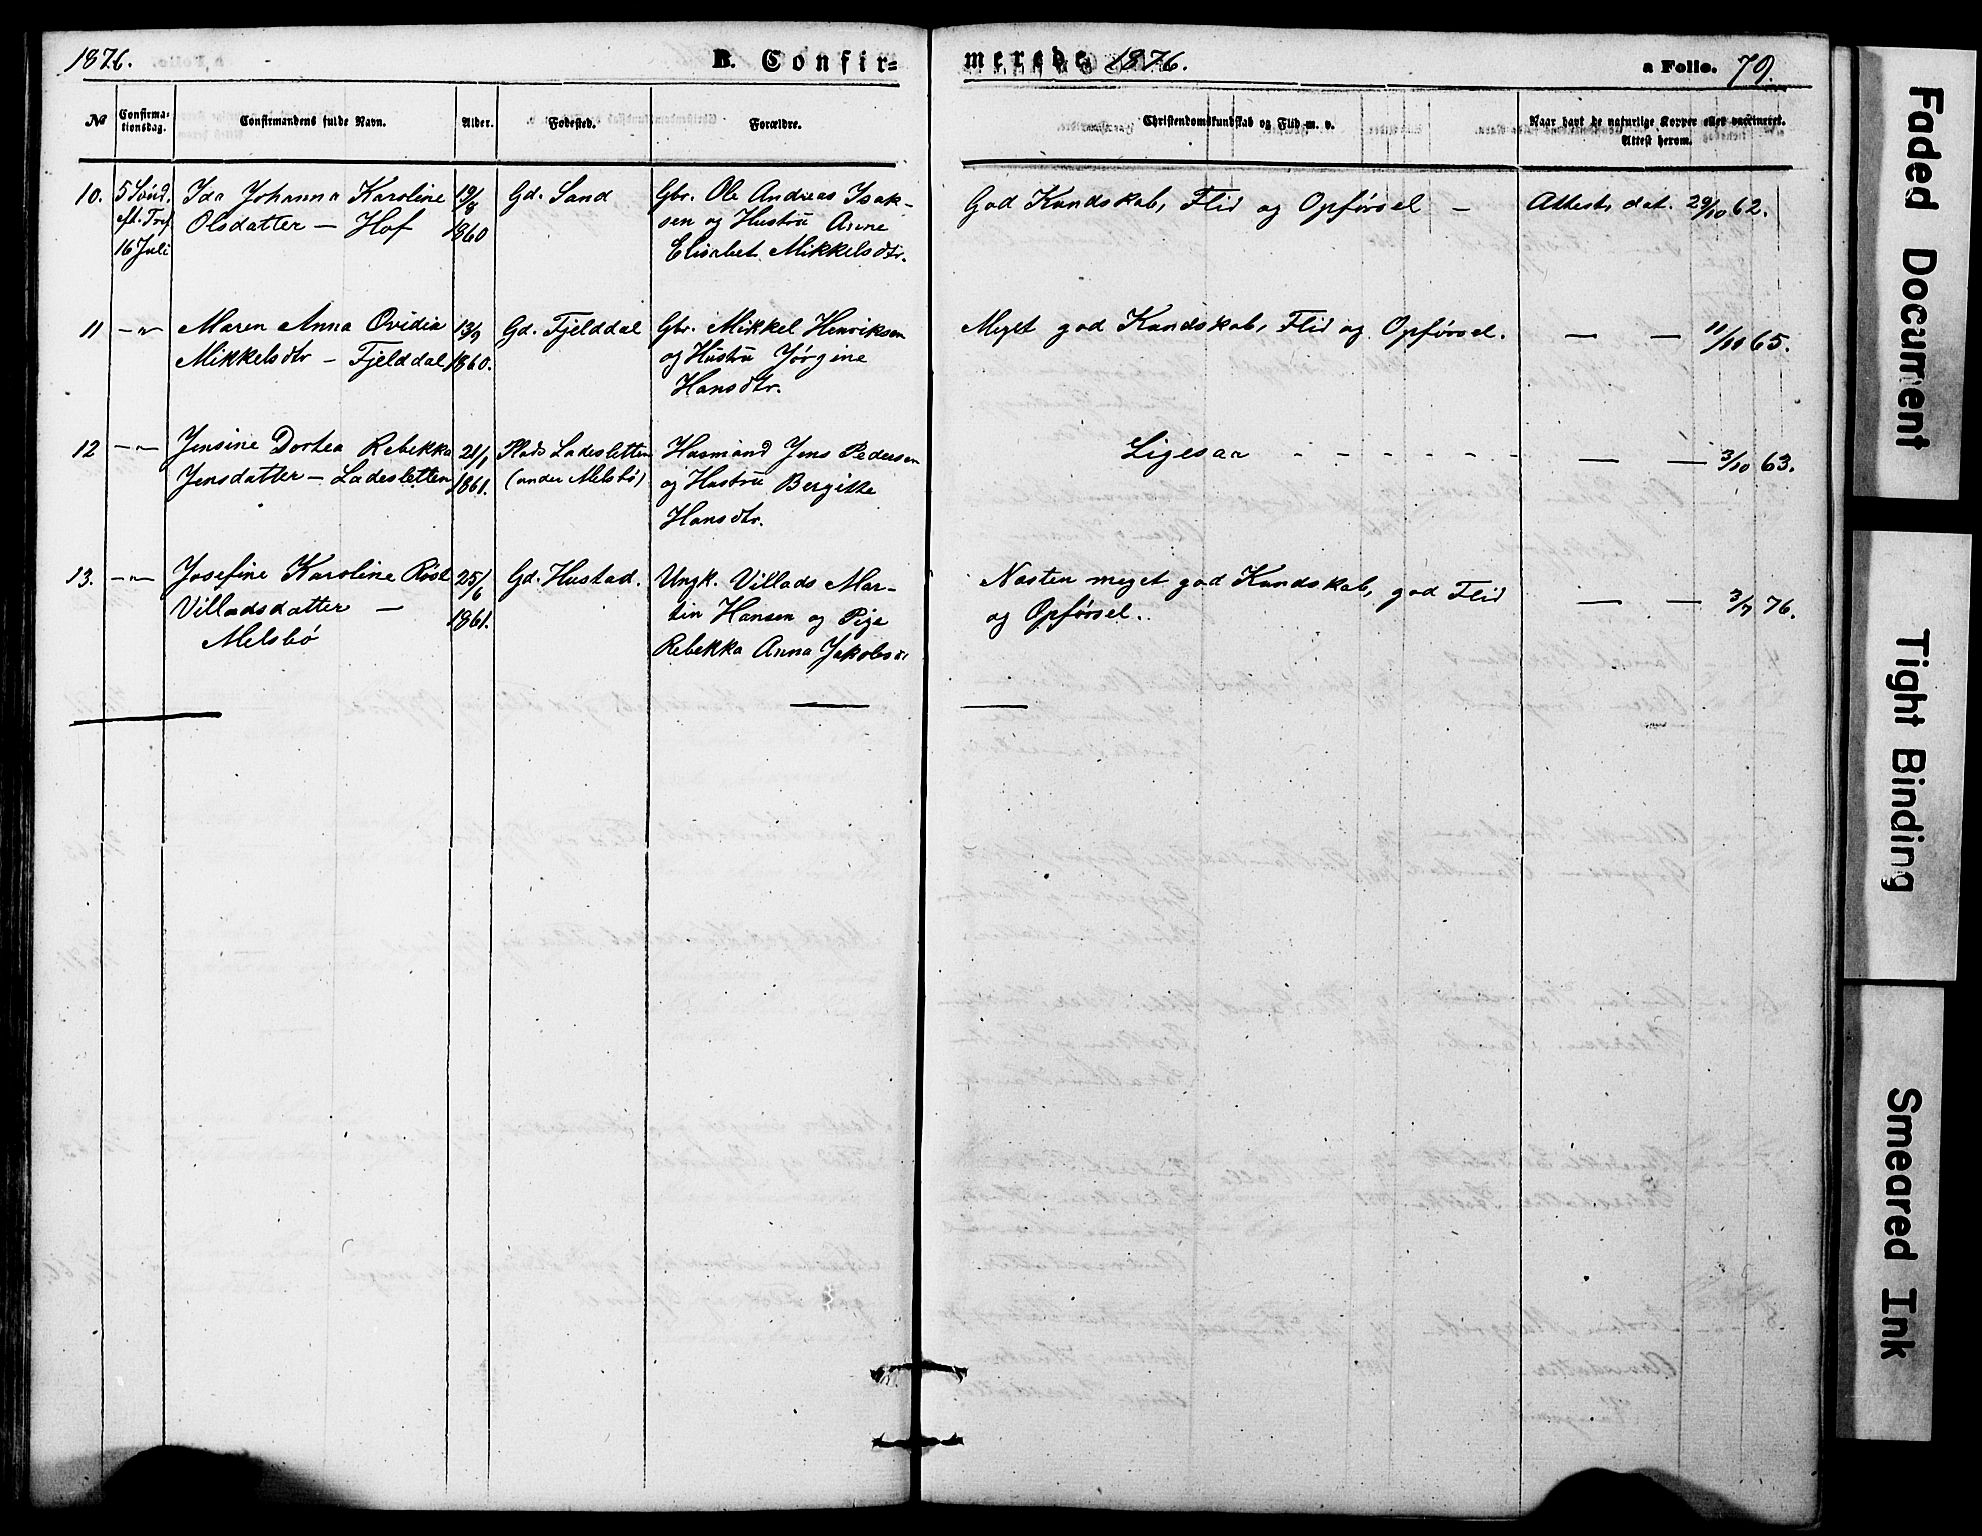 1876.
B. Confir=
merede 1876.
a Folio. 79.
No
Confirma-
tionsdag.
Confirmandens fulde Navn.
Alder.
Fødested.
Forældre.
Christendomskundskab og Flid m. v.
Naar havt de naturlige Kopper eller vaccineret.
Attest herom.
10. 5 Sönd. Ida Johanna Karoline 19/8 Gd. Sand Gbr. Ole Andreas Isak- God Kundskab, Flid og Opførsel — Attest, dat. 29/10 62.
eft. Tref. Olsdatter — Hof 1860 sen og Hustru Anne
16 Juli Elisabet Mikkelsdtr.
11 —"— Maren Anna Ovidia 13/9 Gd. Fjelddal Gbr. Mikkel Henriksen Meget god Kundskab, Flid og Opførsel. — — 11/10 65.
Mikkelsdtr — Fjelddal 1860. og Hustru Jørgine
Hansdtr.
12 —"— Jensine Dortea Rebekka 21/1 Plads Ladesletten Husmand Jens Pedersen Ligesaa - - - - - - — — 3/10 63.
Jensdatter — Ladesletten 1861. (under Melsbø) og Hustru Bergitte
Hansdtr.
13. —"— Josefine Karoline 25/6 Gd. Hustad. Ungk. Villads Mar- Næsten meget god Kundskab, god Flid — — 3/7 76.
Villadsdatter — 1861. tin Hansen og Pige og Opførsel.
Melsbø Rebekka Anna Jakobsdr
Faded Document
Tight Binding
Smeared Ink